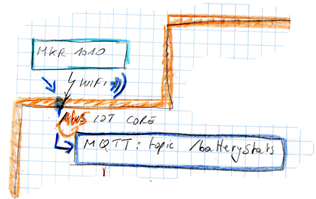 MKR 1010
WiFi
AWS IOT CORE
MQTT: topic /batteryStats